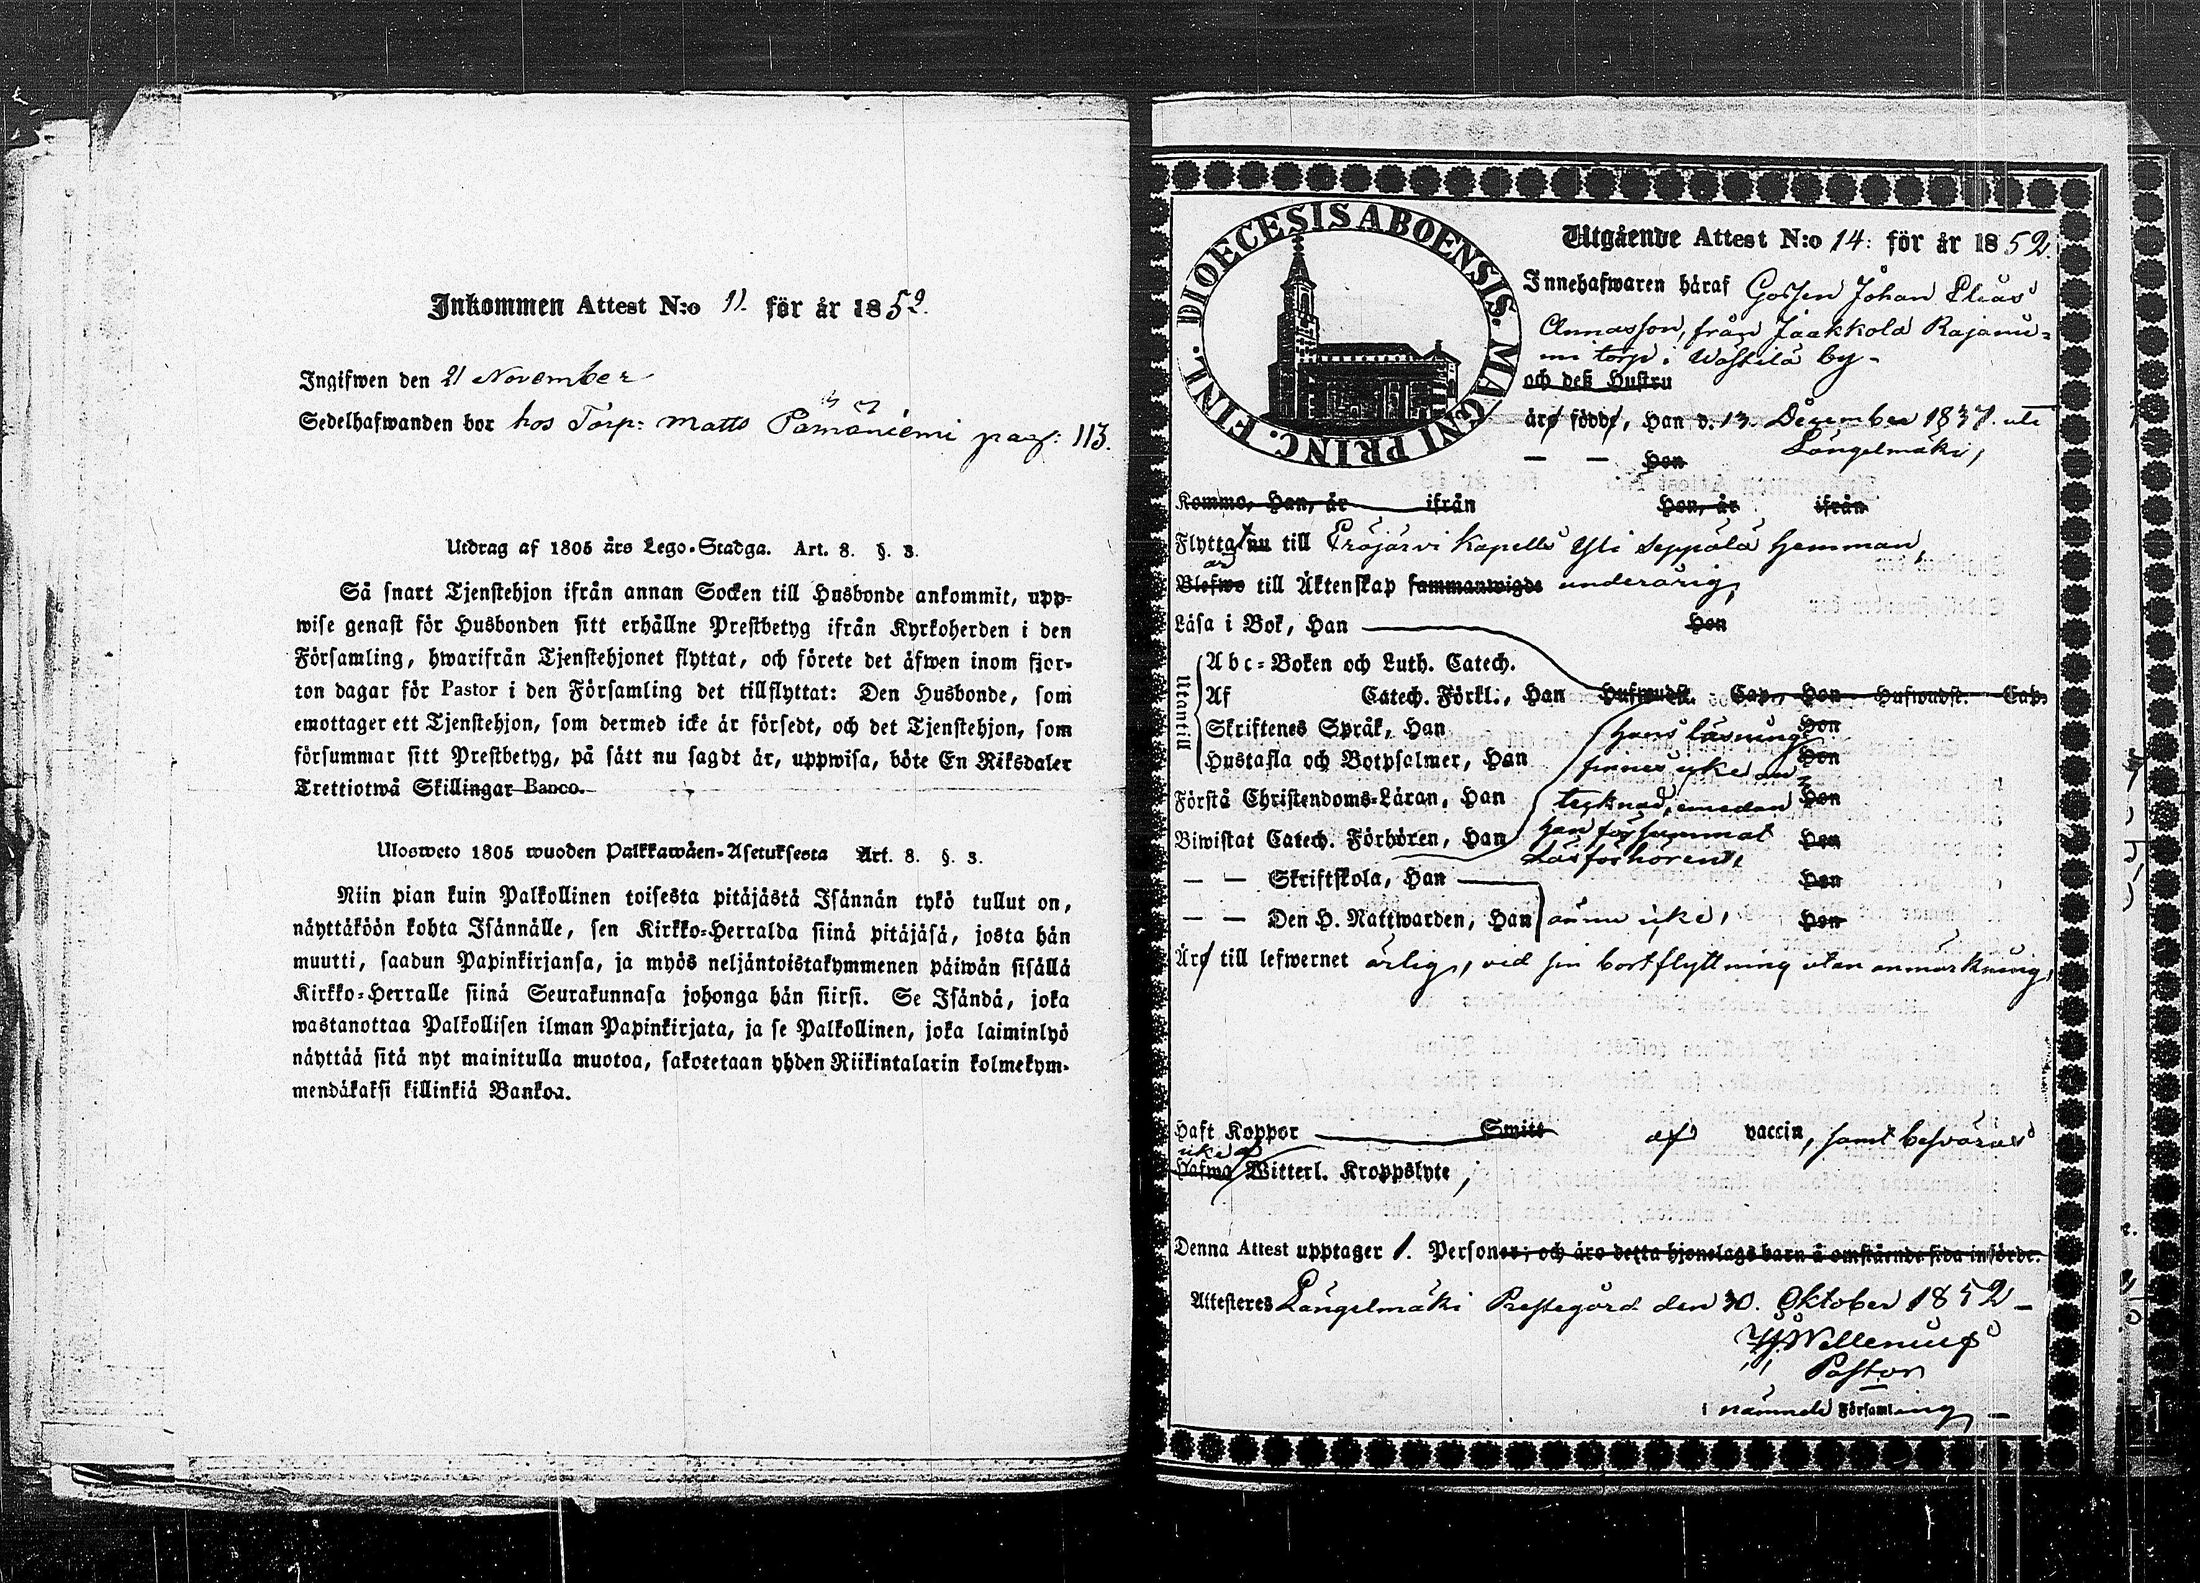 Inkommen Attest N:o 11. för år 1852.
Ingifwen den 21 November
Sedelhafwanden bor hos Torp: Matts Pämäniemi pag: 113.
Utdrag af 1805 års Lego-Stadga. Art. 8. §. 3.
Så snart Tjenstehjon ifrån annan Socken till Husbonde ankommit, upp-
wise genast för Husbonden sitt erhållne Prestbetyg ifrån Kyrkoherden i den
Församling, hwarifrån Tjenstehjonet flyttat, och förete det äfwen inom fjor-
ton dagar för Pastor i den Församling det tillflyttat: Den Husbonde, som
emottager ett Tjenstehjon, som dermed icke är försedt, och det Tjenstehjon, som
försummar sitt Prestbetyg, på sätt nu sagdt är, uppwisa, böte En Riksdaler
Trettiotwå Skillingar Banco.
Ulosweto 1805 wuoden Palkkawäen-Asetuksesta Art. 8. §. 3.
Niin pian kuin Palkollinen toisesta pitäjästä Isännän tykö tullut on,
näyttäköön kohta Isännälle, sen Kirkko-Herralda siinä pitäjäsä, josta hän
muutti, saadun Papinkirjansa, ja myös neljäntoistakymmenen päiwän sisällä
Kirkko-Herralle siinä Seurakunnasa johonga hän siirsi. Se Isändä, joka
wastanottaa Palkollisen ilman Papinkirjata, ja se Palkollinen, joka laiminlyö
näyttää sitä nyt mainitulla muotoa, sakotetaan yhden Riikintalarin kolmekym-
mendäkaksi killinkiä Bankoa.
DIOECESIS ABOENSIS. MAGNI PRINC. FINL.
Utgående Attest N:o 14: för år 1852.
Innehafwaren häraf Gossen Johan Elias
Annasson, från Jaakkola Rajanie-
mi torp i Wästilä by
och deß Hustru
äro födde, Han d. 13. December 1837. uti
— — Hon Längelmäki,
Komma, Han, år ifrån Hon, år ifrån
Flyttar nu till Eräjärvi Kapells Yli Seppälä hemman,
är
Blefwo till Äktenskap sammanwigde underårig,
Läsa i Bok, Han Hon
Utantill
Abc-Boken och Luth. Catech.
Af Catech. Förkl., Han Hufwudst. Cap., Hon Hufwudst. Cap.
Skriftenes Språk, Han hans läsning Hon
Hustafla och Botpsalmer, Han finnes icke an Hon
Förstå Christendoms-Läran, Han tecknad, emedan Hon
Biwistat Catech. Förhören, Han han försummat Hon
Läsförhören,
— — Skriftskola, Han Hon
— — Den H. Nattwarden, Han ännu icke, Hon
Äro till lefwernet ärlig, vid sin bortflyttning utan anmärkning,
Haft Koppor Smitt af vaccin, samt besväras
icke af
Hafwa Witterl. Kroppslyte,
Denna Attest upptager 1. Personer; och äro detta hjonelags barn å omstående sida införde.
Attesteres Längelmäki Prestegård den 30. Oktober 1852
Wellenius
Pastor
i nämnde Församling